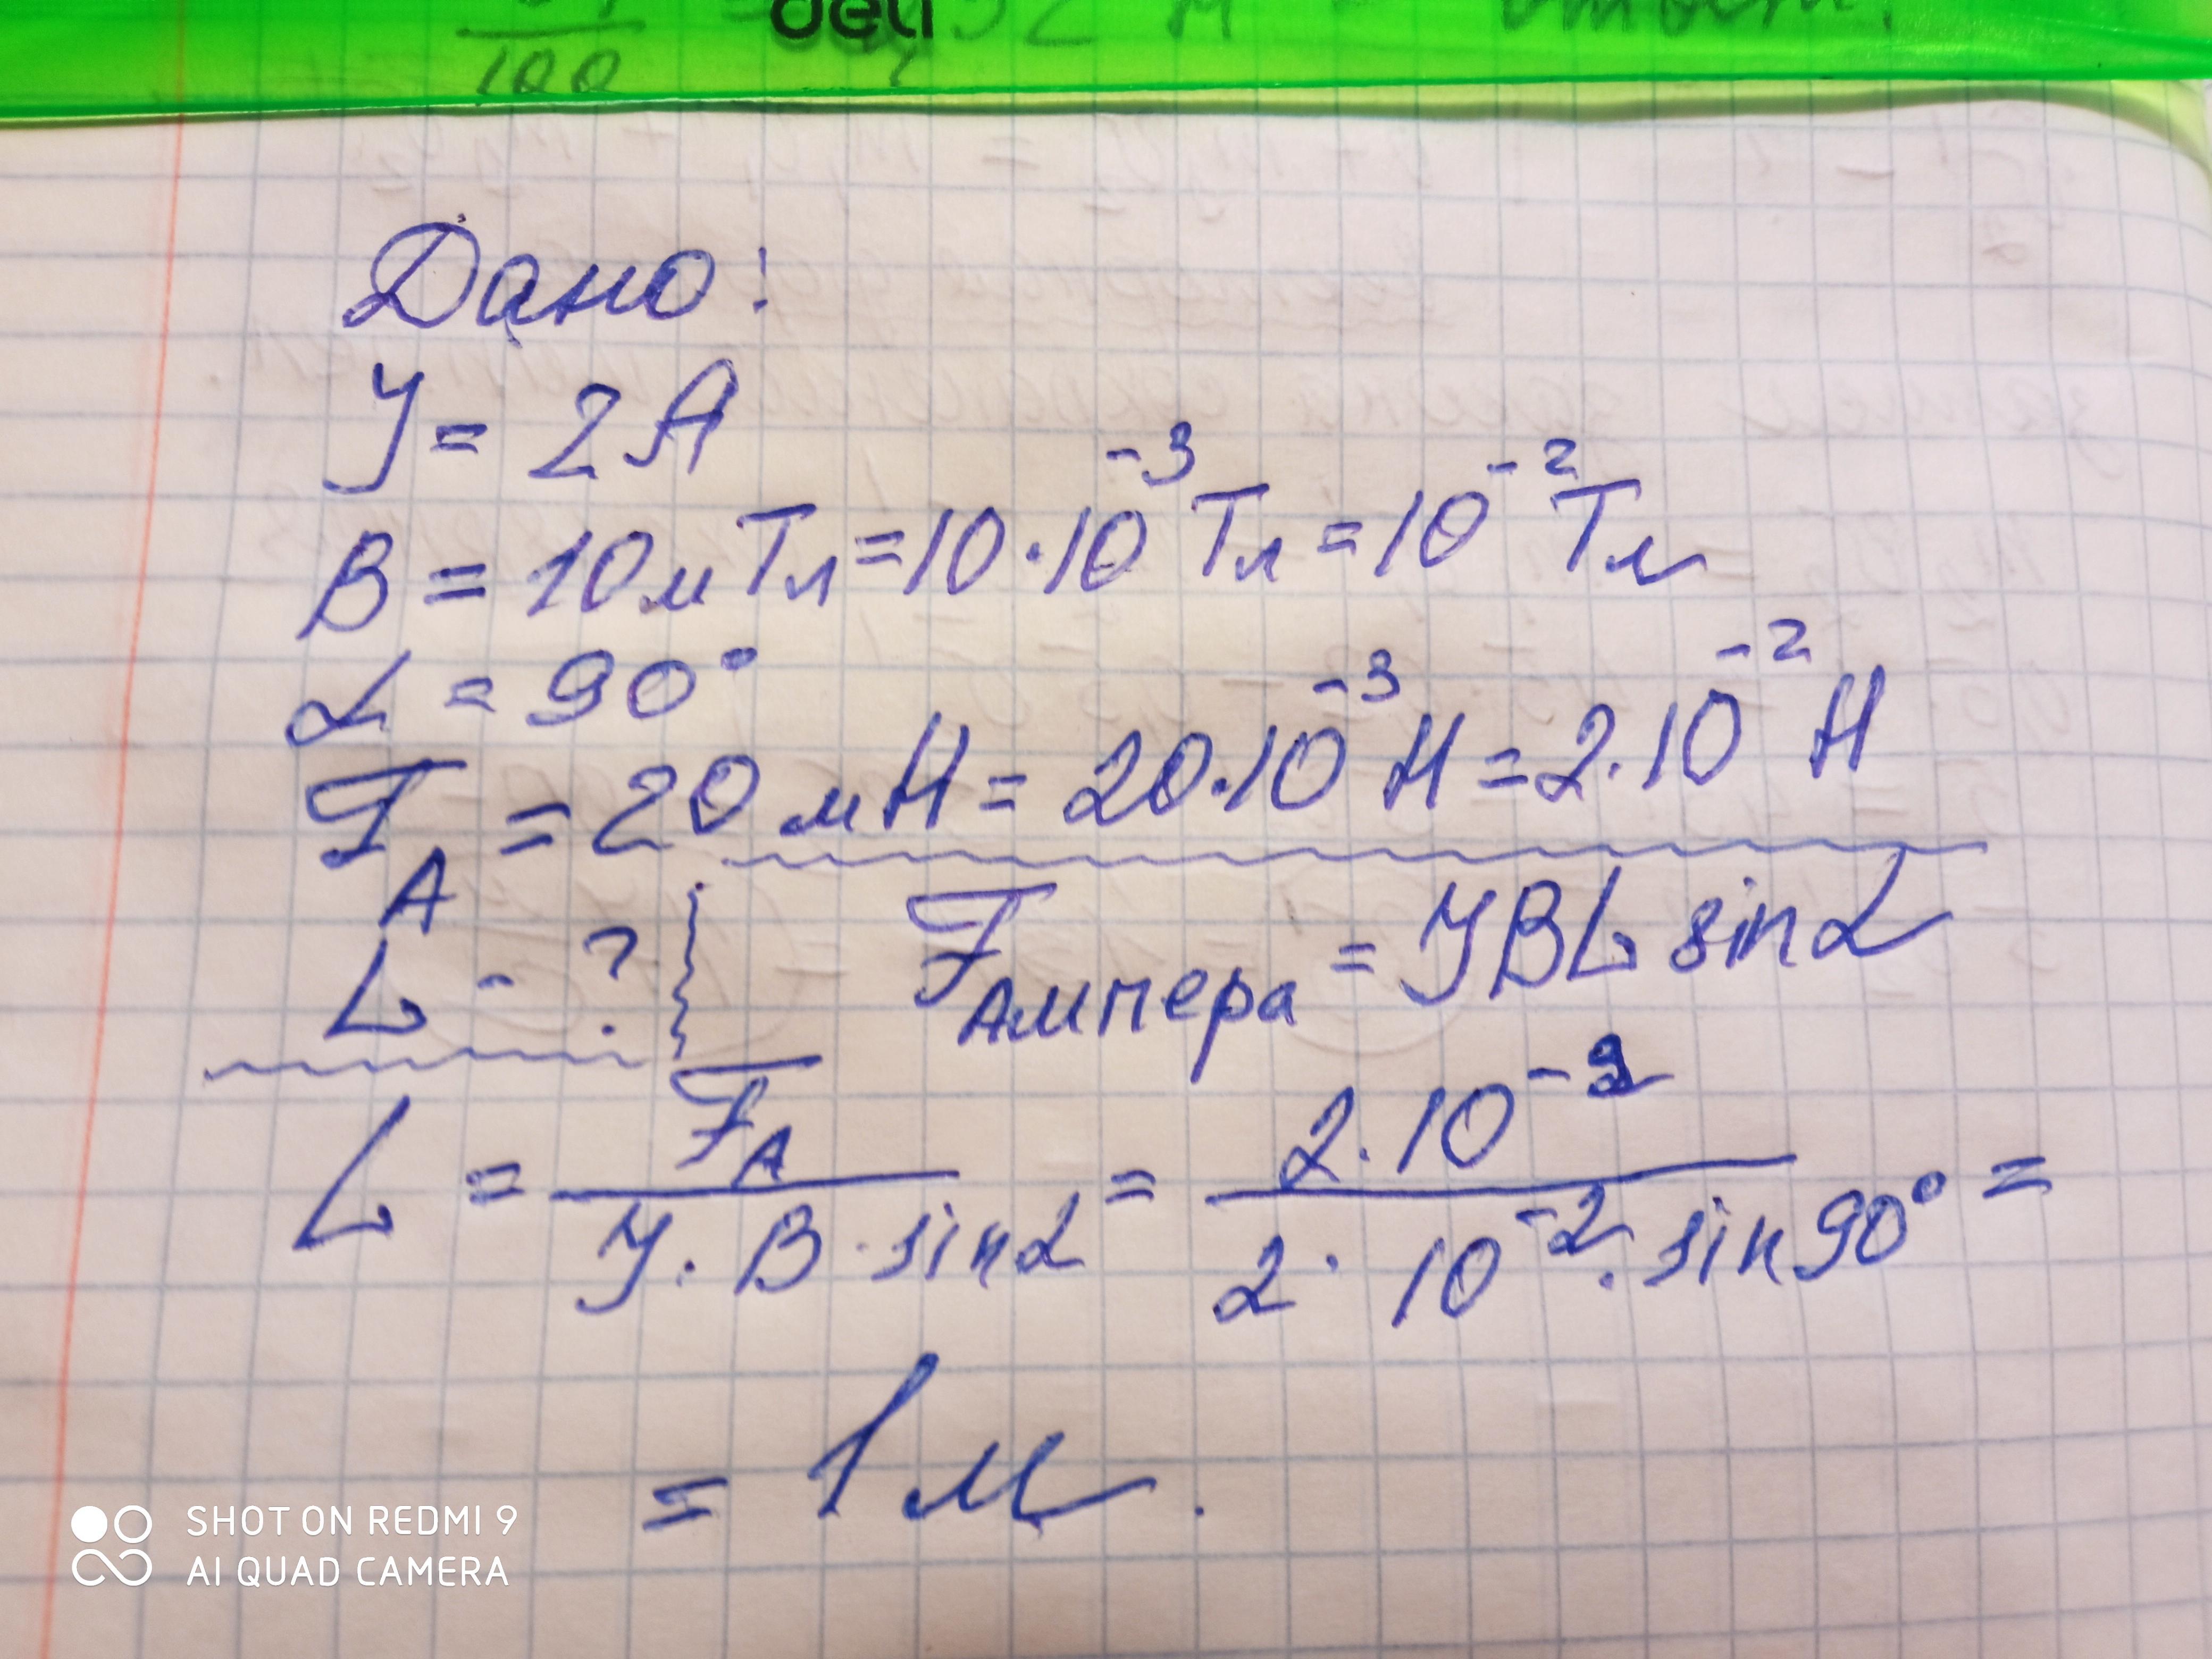 deli
100
Дано:
У = 2 А
В = 10 мТл = 10·10⁻³ Тл = 10⁻² Тл
α = 90°
F_A = 20 мН = 20·10⁻³ Н = 2·10⁻² Н
L - ?
F_Ампера = УВL sin α
L = F_A / (У · В · sin α) = 2·10⁻² / (2 · 10⁻² · sin 90°) =
= 1 м.
SHOT ON REDMI 9
AI QUAD CAMERA